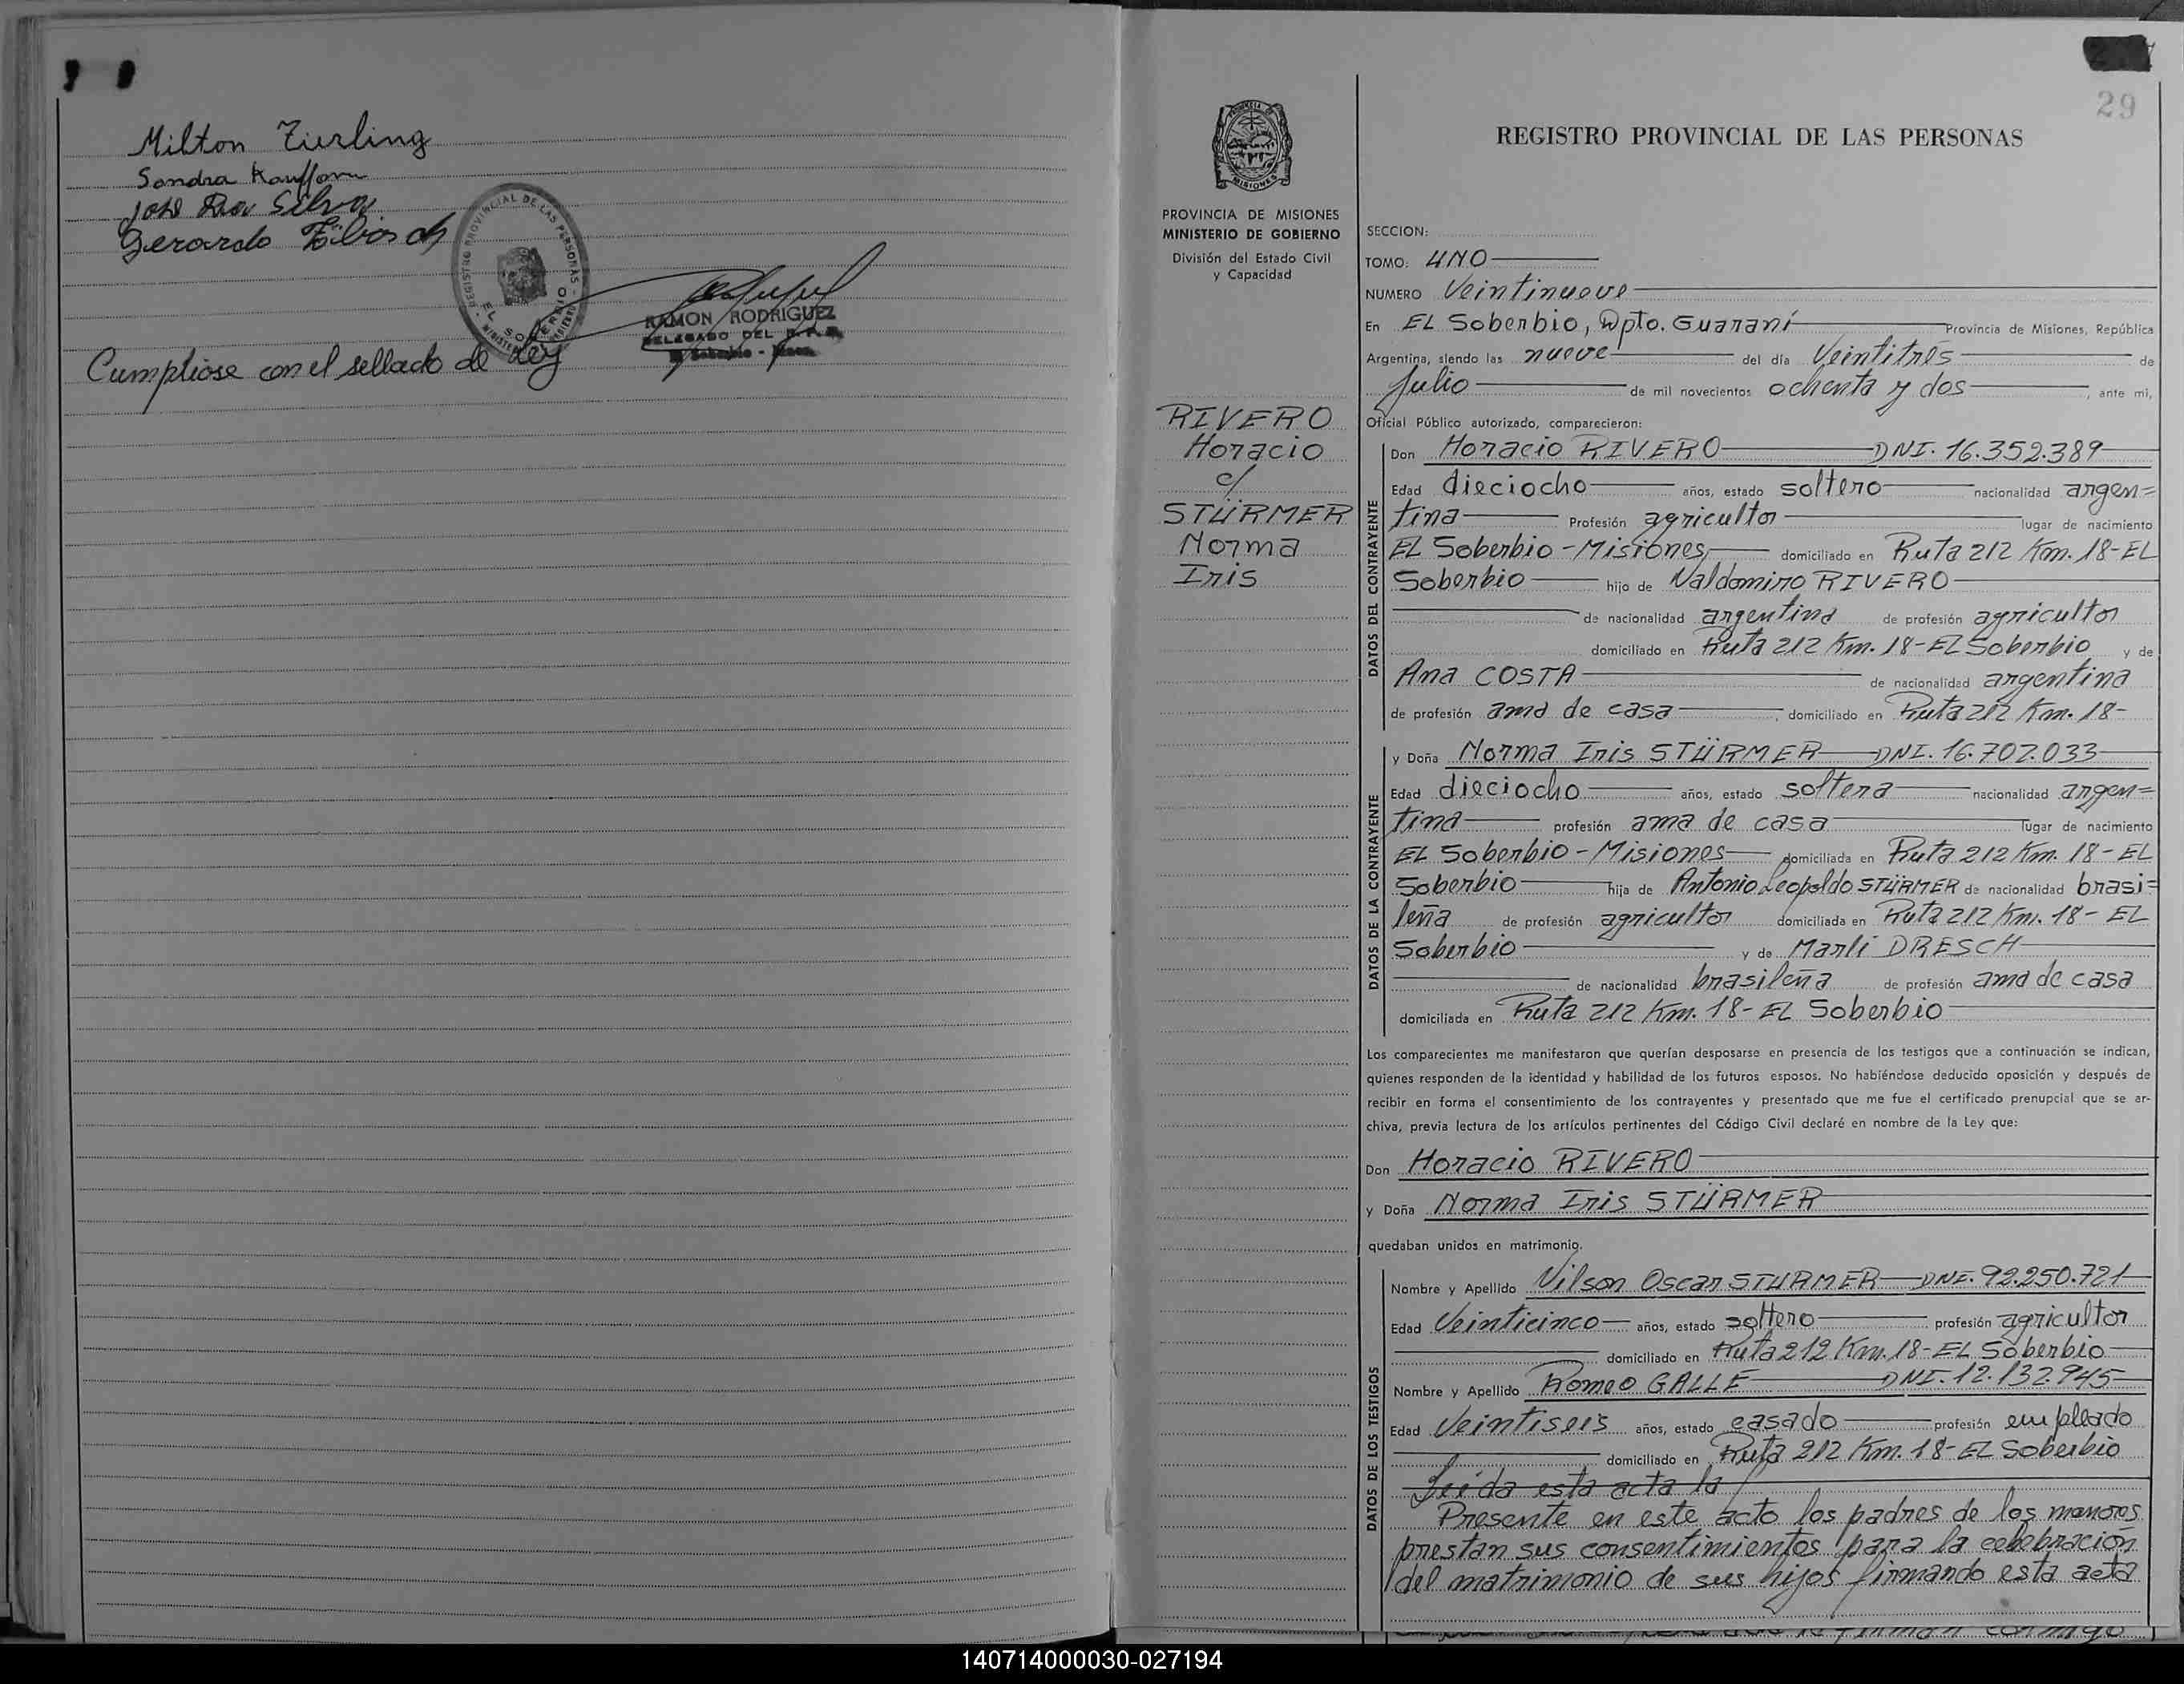 Milton Zierling
Sandra Kauffann
José Da Silva
Gerardo
REGISTRO PROVINCIAL DE LAS PERSONAS
EL SOBERBIO
RAMON RODRIGUEZ
DELEGADO DEL R.P.P.
El Soberbio - Mnes.
Cumpliose con el sellado de Ley
29
REGISTRO PROVINCIAL DE LAS PERSONAS
PROVINCIA DE MISIONES
MINISTERIO DE GOBIERNO
División del Estado Civil
y Capacidad
RIVERO
Horacio
c/
STÜRMER
Norma
Iris
SECCION:
TOMO: UNO
NUMERO Veintinueve
En EL Soberbio, Dpto. Guaraní Provincia de Misiones, República
Argentina, siendo las nueve del día Veintitrés de
Julio de mil novecientos ochenta y dos, ante mi,
Oficial Público autorizado, comparecieron:
DATOS DEL CONTRAYENTE
Don Horacio RIVERO DNI. 16.352.389
Edad dieciocho años, estado soltero nacionalidad argen=
tina Profesión agricultor lugar de nacimiento
EL Soberbio - Misiones, domiciliado en Ruta 212 Km. 18 - EL
Soberbio hijo de Valdomiro RIVERO
de nacionalidad argentina de profesión agricultor
domiciliado en Ruta 212 Km. 18 - EL Soberbio y de
Ana COSTA de nacionalidad argentina
de profesión ama de casa, domiciliado en Ruta 212 Km. 18 -
DATOS DE LA CONTRAYENTE
y Doña Norma Iris STÜRMER DNI. 16.702.033
Edad dieciocho años, estado soltera nacionalidad argen=
tina profesión ama de casa lugar de nacimiento
EL Soberbio - Misiones domiciliada en Ruta 212 Km. 18 - EL
Soberbio hija de Antonio Leopoldo STÜRMER de nacionalidad brasi=
leña de profesión agricultor domiciliada en Ruta 212 Km. 18 - EL
Soberbio y de Marli DRESCH
de nacionalidad brasileña de profesión ama de casa
domiciliada en Ruta 212 Km. 18 - EL Soberbio
Los comparecientes me manifestaron que querían desposarse en presencia de los testigos que a continuación se indican,
quienes responden de la identidad y habilidad de los futuros esposos. No habiéndose deducido oposición y después de
recibir en forma el consentimiento de los contrayentes y presentado que me fue el certificado prenupcial que se ar-
chiva, previa lectura de los artículos pertinentes del Código Civil declaré en nombre de la Ley que:
Don Horacio RIVERO
y Doña Norma Iris STÜRMER
quedaban unidos en matrimonio.
DATOS DE LOS TESTIGOS
Nombre y Apellido Vilson Oscar STURMER DNI. 92.250.721
Edad Veinticinco años, estado soltero profesión agricultor
domiciliado en Ruta 212 Km. 18 - EL Soberbio
Nombre y Apellido Romeo GALLE DNI. 12.132.945
Edad Veintiseis años, estado casado profesión empleado
domiciliado en Ruta 212 Km. 18 - EL Soberbio
Leída esta acta la
Presente en este acto los padres de los menores
prestan sus consentimientos para la celebración
del matrimonio de sus hijos firmando esta acta
firman conmigo
140714000030-027194